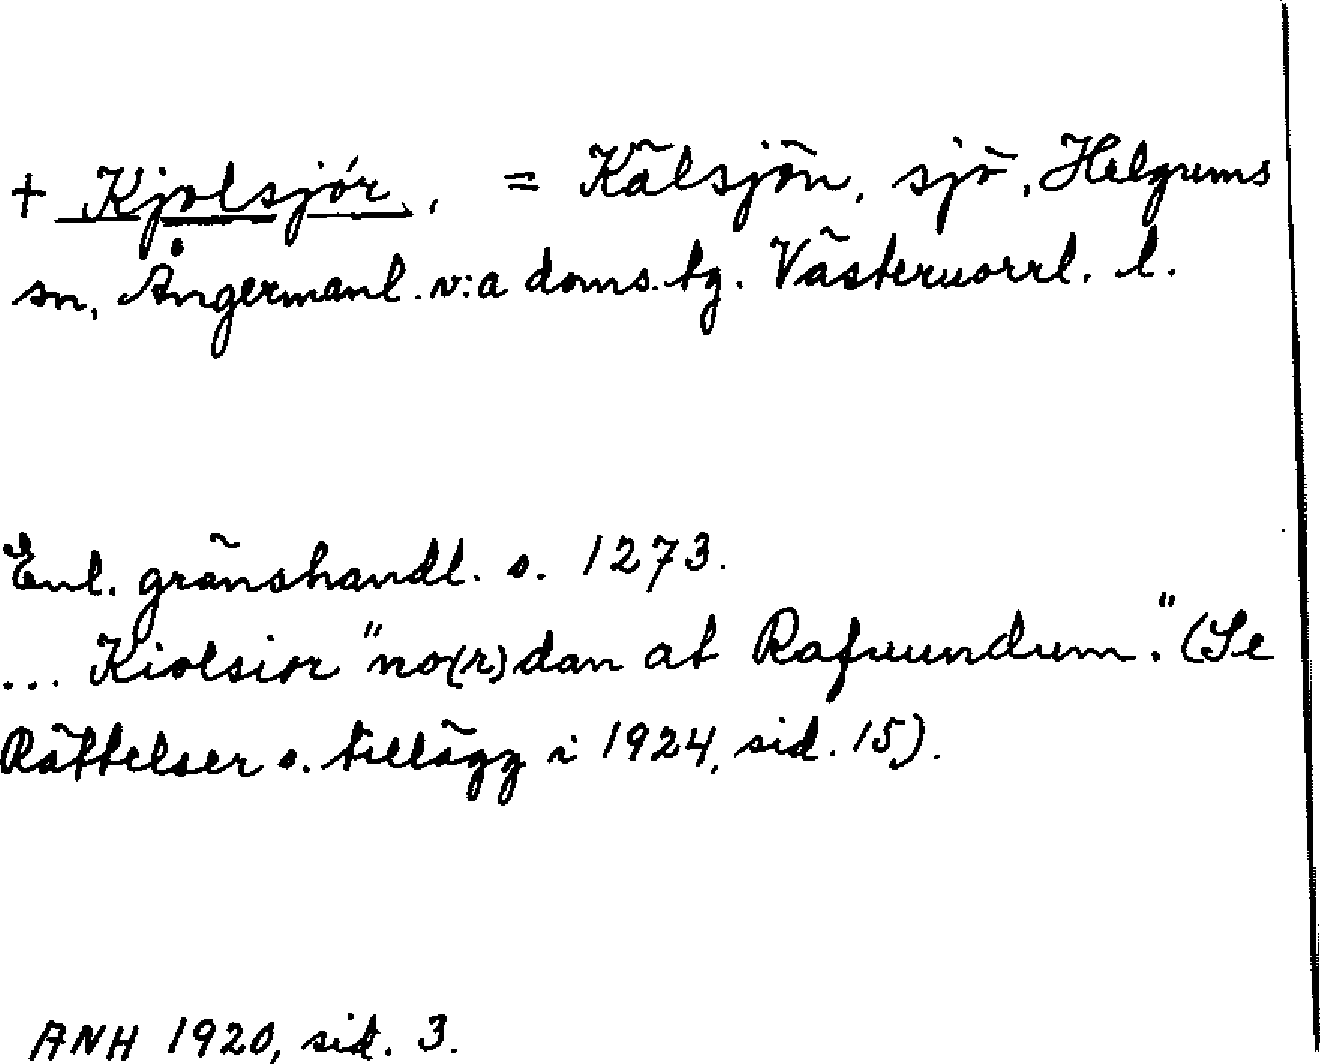 + Kjolsjór, = Kälsjön, sjö, Helgums
sn, Ångermanl. v:a doms. tg. Västernorrl. l.
Enl. gränshandl. s. 1273.
... Kiolsior "no(r)dan at Rafnundum." (Se
Rättelser o. tillägg i 1924, sid. 15).
ANH 1920, sid. 3.